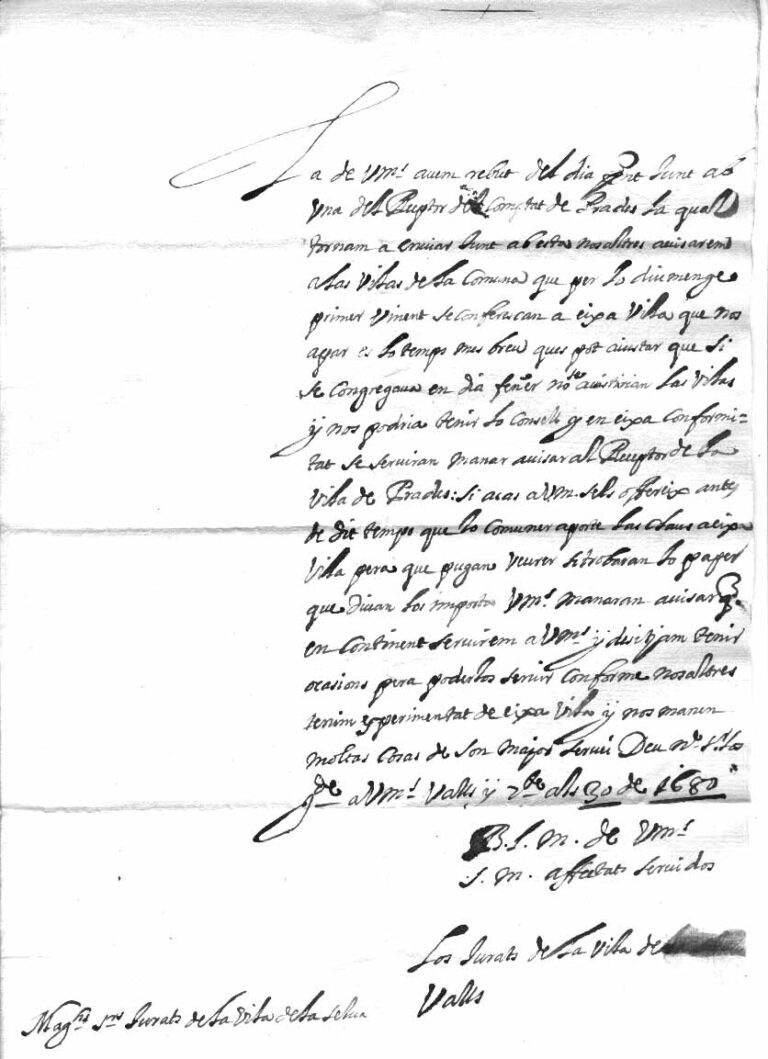 La de Vms. avem rebut del dia pnt Junt ab
Una del Receptr del Comptat de Prades la qual
tornam a enviar Junt ab esta nosaltres avisarem
a las Vilas de la Comuna que per lo diumenge
primer vinent se conferescan a eixa Vila que nos
apar es lo temps mes breu ques pot aiustar que si
se congregava en dia fener no se aiustarian las Vilas
y nos podria tenir lo Consell y en eixa conformi-
tat se serviran manar avisar al Receptor de la
Vila de Prades: si acas a Vm. sels offereix antes
de dit temps que lo comuner aporte las claus a eixa
Vila pera que pugan veurer si trobaran lo paper
que diuan los importa Vms. manaran avisar q.
en continent servirem a Vms y desitjam tenir
ocasions pera poderlos servir conforme nosaltres
tenim experimentat de eixa Vila y nos manen
moltas cosas de son major servei Deu nr. Sr. los
gde a Vms. Valls y 2bre als 30 de 1680
B. S. M. de Vms
S. M. affectats servidos
Los Jurats de la Vila de
Valls
Maghs Snrs Jurats de la Vila de la Selva